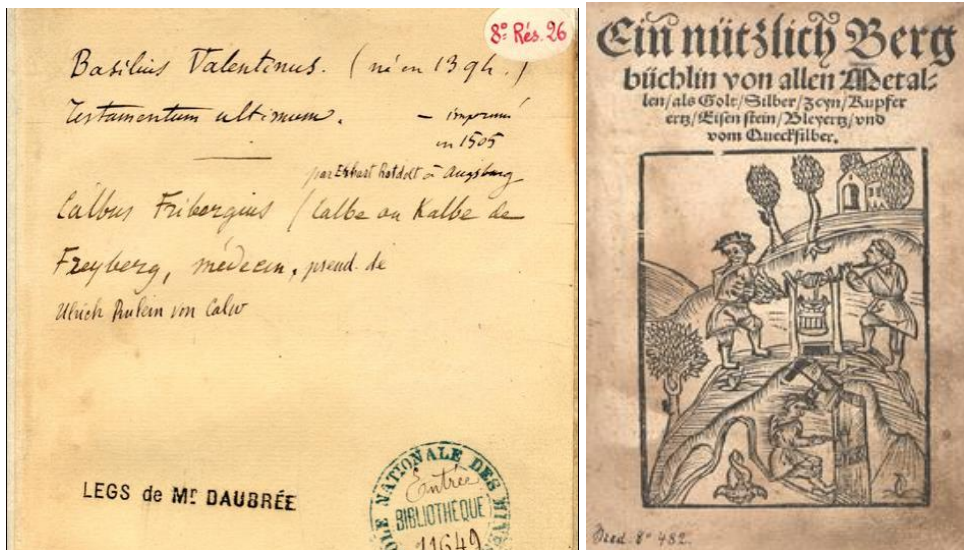 8º Rés. 26
Basilius Valentinus. (né en 1394.)
Testamentum ultimum. – imprimé
en 1505
par Erhart Ratdolt à Augsburg
Calbus Fribergius (Calbe ou Kalbe de
Freyberg, médecin, pseud. de
Ulrich Rulein von Calw
LEGS de Mr DAUBRÉE
ÉCOLE NATIONALE DES MINES
Entrée
BIBLIOTHEQUE
11649
Ein nützlich Berg
büchlin von allen Metal-
len/als Golt/Silber/Zcyn/Kupfer
ertz/Eisen stein/Bleyertz/vnd
vom Quecksilber.
8º 482.